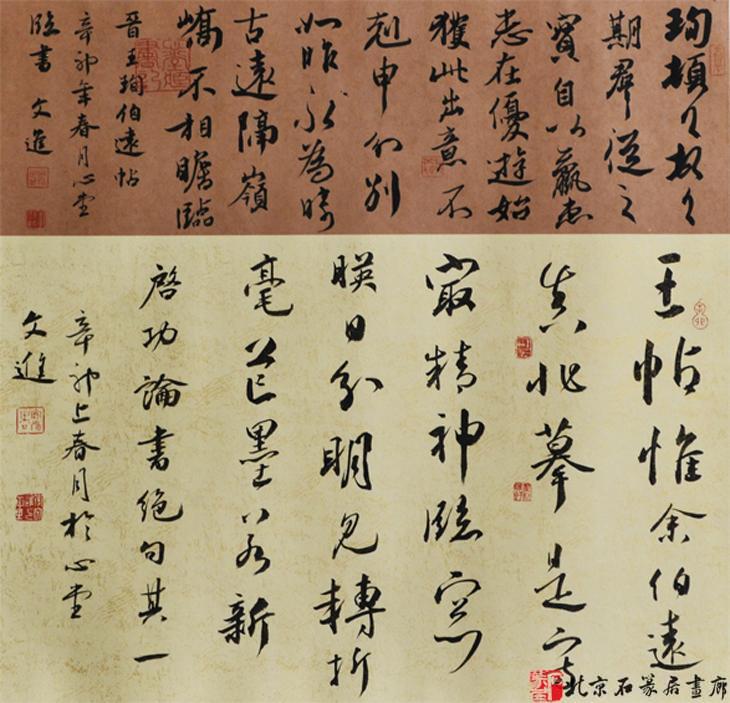 珣頓〻首〻
期群從之
寶自以羸患
志在優遊始
獲此出意不
剋申分別
如昨永為疇
古遠隔嶺
嶠不相瞻臨
晉王珣伯遠帖
辛卯年春月心堂
臨書 文進
王帖惟余伯遠
真非摹是寫
最精神臨窓
暎日分明見轉折
毫芒墨若新
啓功論書絕句其一
辛卯上春月於心堂
文進
北京石篆居畫廊